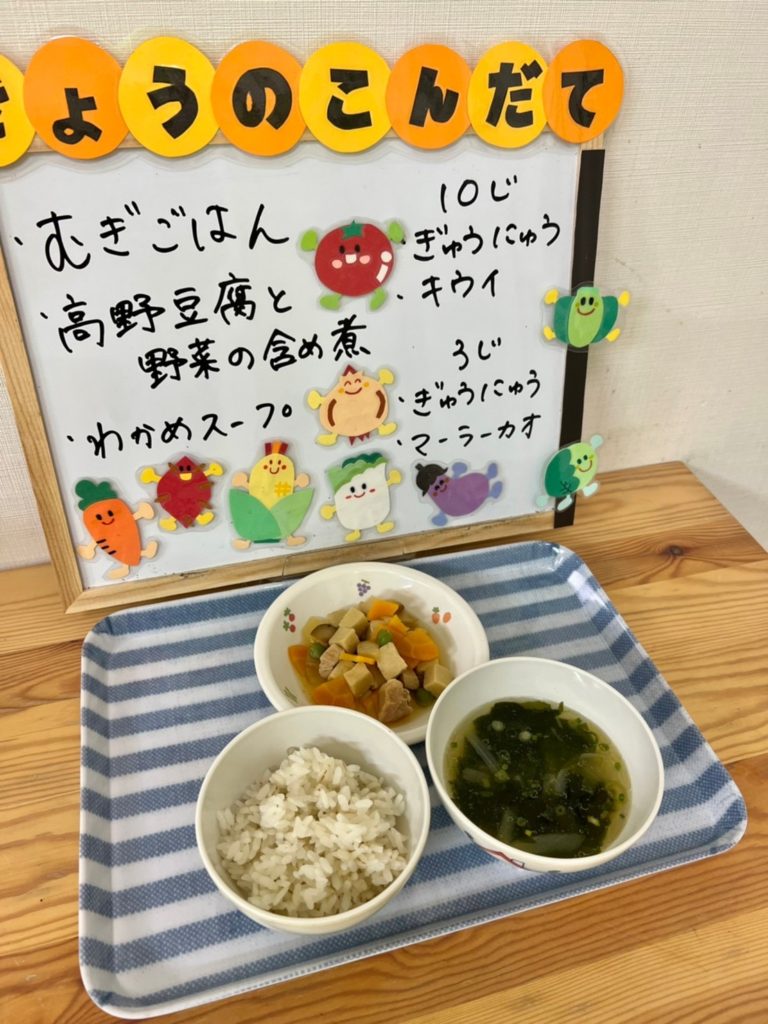 きょうのこんだて
・むぎごはん
・高野豆腐と
野菜の含め煮
・わかめスープ
10じ
・ぎゅうにゅう
・キウイ
3じ
・ぎゅうにゅう
・マーラーカオ